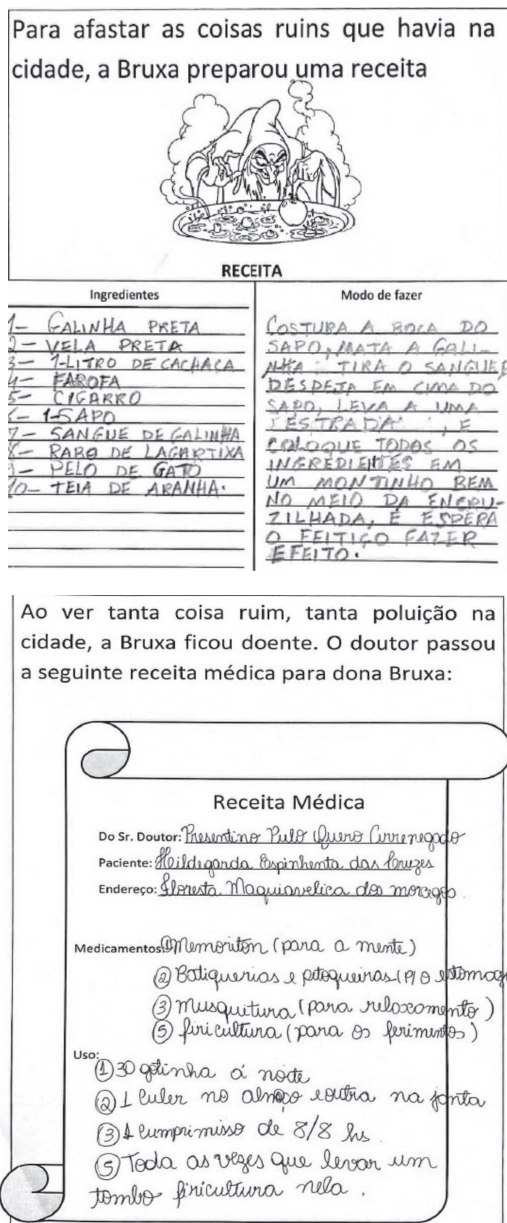 Para afastar as coisas ruins que havia na
cidade, a Bruxa preparou uma receita
RECEITA
Ingredientes
1- GALINHA PRETA
2- VELA PRETA
3- 1-LITRO DE CACHAÇA
4- FAROFA
5- CIGARRO
6- 1-SAPO
7- SANGUE DE GALINHA
8- RABO DE LAGARTIXA
9- PELO DE GATO
10- TEIA DE ARANHA.
Modo de fazer
COSTURA A BOCA DO
SAPO, MATA A GALI-
NHA TIRA O SANGUE E
DESPEJA EM CIMA DO
SAPO, LEVA A UMA
ESTRADA , E
COLOQUE TODOS OS
INGREDIENTES EM
UM MONTINHO BEM
NO MEIO DA ENCRU-
ZILHADA, E ESPERA
O FEITIÇO FAZER
EFEITO.
Ao ver tanta coisa ruim, tanta poluição na
cidade, a Bruxa ficou doente. O doutor passou
a seguinte receita médica para dona Bruxa:
Receita Médica
Do Sr. Doutor: Presentino Pulo Quero Carrenegado
Paciente: Hildeganda Espinhenta das Cruzes
Endereço: Floresta Maquiavelica dos morcegos.
Medicamentos: ① Memoriton (para a mente)
② Batiquerias e pitoqueiras (p/ o estomago
③ Musquitura (para reloxomento)
⑤ firicultura (para os ferimentos)
Uso:
① 30 gotinha á noite
② 1 culer no almoço e outra na janta
③ 1 cumprimisso de 8/8 hs
⑤ Toda as vezes que levar um
tombo firicultura nela.